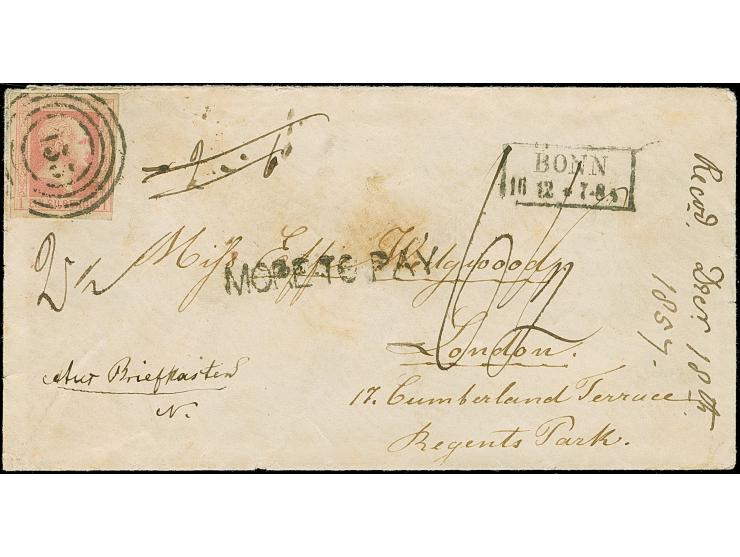 BONN
16 12 * 7-8
Miss Effie Wedgwood
MORE TO PAY
London.
17. Cumberland Terrace
Regents Park.
Aus Briefkasten
N.
Recd. Decr 18th
1857.